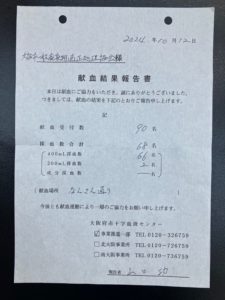 2024年10月12日
献血結果報告書
本日は献血にご協力をいただき、誠にありがとうございました。
つきましては、献血の結果を下記のとおりご報告申し上げます。
記
献血受付数 90名
採血数合計 68名
400mL採血数 66名
200mL採血数 2名
成分採血数 名
献血場所 なんさん通り
今後とも献血運動により一層のご協力をお願い申し上げます。
大阪府赤十字血液センター
☑事業推進一部 TEL.0120-326759
□北大阪事業所 TEL.0120-726759
□南大阪事業所 TEL.0120-736759